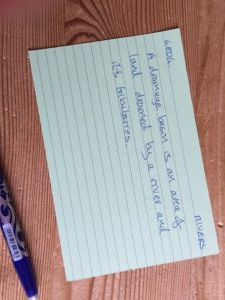 GEOG. RIVERS
A drainage basin is an area of
land drained by a river and
its tributaries